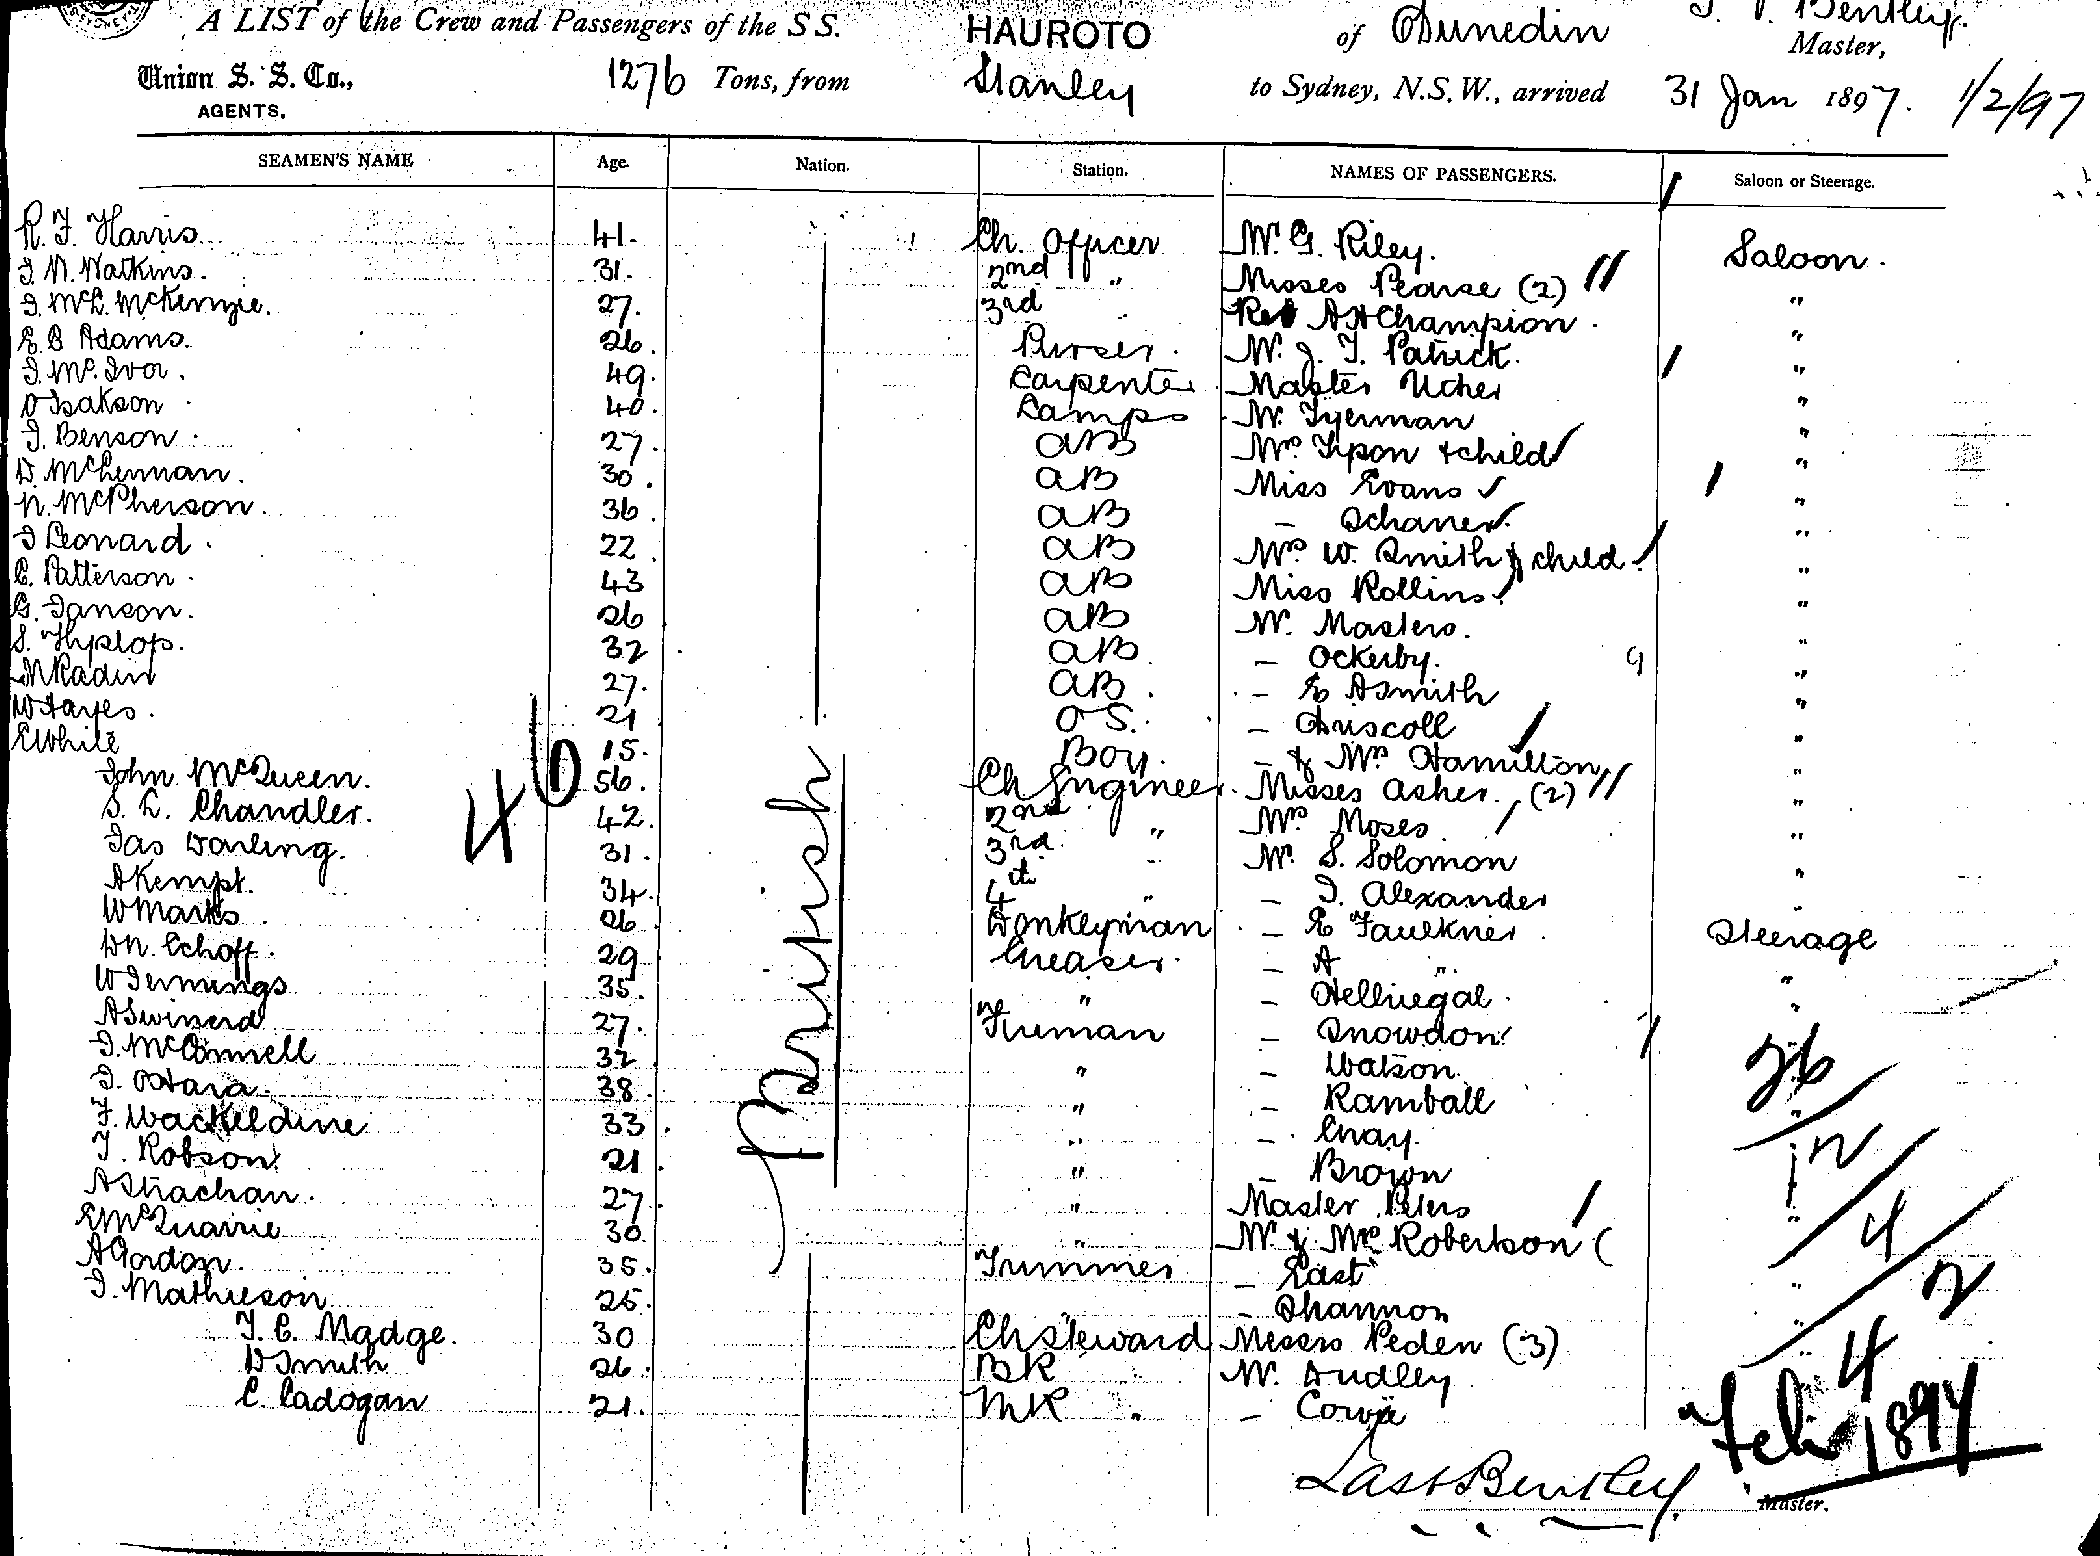 A LIST of the Crew and Passengers of the S S. HAUROTO of Dunedin Bentley.
Master,
Union S. S. Co., 1276 Tons, from Stanley to Sydney, N.S.W., arrived 31 Jan 1897. 1/2/97
AGENTS.
SEAMEN'S NAME Age. Nation. Station. NAMES OF PASSENGERS. Saloon or Steerage.
R. F. Harris 41. Ch. Officer Mr. G. Riley. Saloon.
J. N. Watkins. 31. 2nd " Misses Pearse (2) "
J. McL. McKenzie. 27. 3rd Rev A H Champion. "
E. B Adams. 26. Purser. Mr. J. T. Patrick. "
J. Mc. Ivor. 49. Carpenter Master Ucher "
O Isakson 40. Lamps Mr. Tyerman "
J. Benson. 27. AB Mrs. Tipon & child "
D. McLennan. 30. AB Miss Evans "
N. McPherson. 36. AB - "
J Leonard. 22 AB Mrs W. Smith & child. "
C. Patterson. 43 AB Miss Rollins "
G. Janson. 26 AB Mr. Masters. "
S. Hyslop. 32 AB - Ockerby. 9 "
27. AB. - E A Smith "
W Hayes. 21 O S. - Driscoll "
E White 15. Boy. - & Mrs Hamilton "
John McQueen. 56. Ch Engineer. Misses Asher. (2) "
S. L. Chandler. 42. 2nd " Mrs Moses "
Jas Darling. 31. 3rd Mr. S. Solomon "
A Kempt. 34. 4th " - J. Alexander "
W Marks 26 Donkeyman - E Faulkner Steerage
29 Greaser. - A " "
W Jennings 35. " - Helliegal. "
A Swinerd 27. Fireman - Snowdon
J. McConnell 32 " - Watson.
J. O'Hara 38. " - Ramball "
F. Wackeldine 33. " - Gray.
T. Robson 21. " - Brown
A Strachan. 27. " Master Peters "
E McQuarrie 30. " Mr & Mrs Robertson
A Gordon. 35. Trimmer - East "
J. Mathieson 25. - Shannon "
T. C. Madge. 30 Ch Steward Messrs Peden (3)
D Smith 26. BK Mr. Dudley
C. Cadogan 21. MK - Cowie
British
46
26
12
4
2
4
Feb 1897
Bentley
Master.